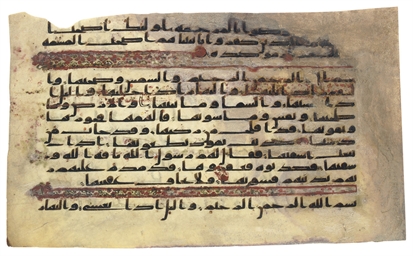 صوا بالمرحمة اولئك اصحب
كفروا باياتنا هم اصحب المشمة
بسم الله الرحمن الرحيم والشمس وضحيها وا
لقمر اذا تليها والنهار اذا جليها واليل ا
ذا يغشيها والسما وما بنيها والارض وما
طحيها ونفس وما سويها فالهمها فجورها
وتقويها قد افلح من زكيها وقد خاب من
دسيها كذبت ثمود بطغويها اذ ا
نبعث اشقيها فقال لهم رسول الله ناقة الله و
سقيها فكذبوه فعقروها فدمدم عليهم ر
بهم بذنبهم فسويها ولا يخاف عقبيها
بسم الله الرحمن الرحيم واليل اذا يغشى والنهار